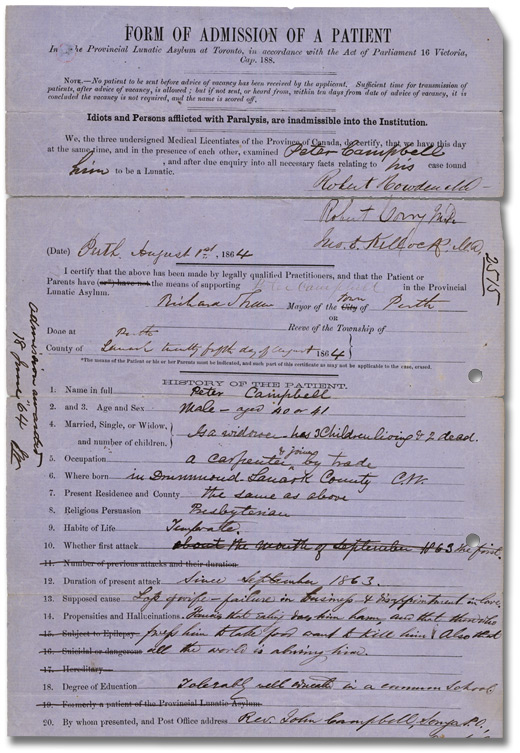 FORM OF ADMISSION OF A PATIENT
In the Provincial Lunatic Asylum at Toronto, in accordance with the Act of Parliament 16 Victoria,
Cap. 188.
NOTE.—No patient to be sent before advice of vacancy has been received by the applicant. Sufficient time for transmission of
patients, after advice of vacancy, is allowed; but if not sent, or heard from, within ten days from date of advice of vacancy, it is
concluded the vacancy is not required, and the name is scored off.
Idiots and Persons afflicted with Paralysis, are inadmissible into the Institution.
We, the three undersigned Medical Licentiates of the Province of Canada, do certify, that we have this day
at the same time, and in the presence of each other, examined Peter Campbell
, and after due enquiry into all necessary facts relating to his case found
him to be a Lunatic.
Robert Howden MD
Robert
Jno. S. Kellock MD
(Date) Perth August 1st, 1864
2515
I certify that the above has been made by legally qualified Practitioners, and that the Patient or
Parents have (or) have not the means of supporting Peter Campbell in the Provincial
Lunatic Asylum.
Richard Shaw Mayor of the City Town of Perth
OR
Done at Perth Reeve of the Township of
County of Lanark day of August 1864
*The means of the Patient or his or her Parents must be indicated, and such part of this certificate as may not be applicable to the case, erased.
Admission awarded
18 June '64
HISTORY OF THE PATIENT.
1. Name in full Peter Campbell
2. and 3. Age and Sex Male – aged 40 or 41
4. Married, Single, or Widow, and number of children. Is a widower has 3 Children living & 2 dead.
5. Occupation a Carpenter & joiner by trade
6. Where born in Drummond Lanark County C.W.
7. Present Residence and County the same as above
8. Religious Persuasion Presbyterian
9. Habits of Life Temperate
10. Whether first attack. about the month of September 1863 the first.
11. Number of previous attacks and their duration
12. Duration of present attack Since September 1863.
13. Supposed cause failure in business & disappointment in love
14. Propensities and Hallucinations. Fancies that eating does him harm and that those who
15. Subject to Epilepsy. press him to take food want to kill him. Also that
16. Suicidal or dangerous all the world is abusing him.
17. Hereditary
18. Degree of Education Tolerably well educated in a common School
19. Formerly a patient of the Provincial Lunatic Asylum.
20. By whom presented, and Post Office address Rev. John Campbell,